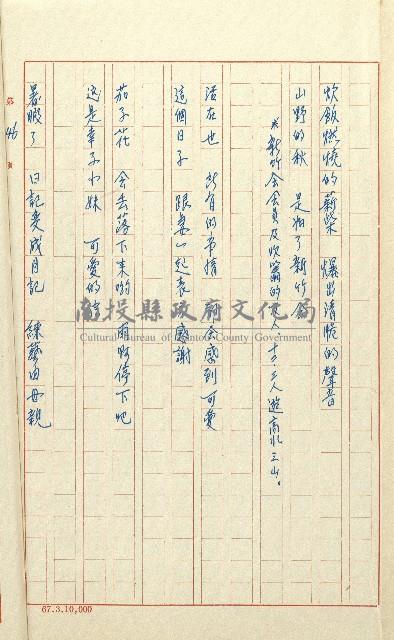 炊飯燃燒的薪柴 爆出清脆的聲音
山野的秋 是
※新竹会会員及吹簫的 人 三人遊高 三山。
活在世 所有的事情 会感到可愛
這個日子 跟妻一起表 感謝
茄子花 会丟落下来的 雨啊停下吧
这是幸子小妹 可愛的
暑假了 日記変成月記 練 由母親
第 46 頁
南投縣政府文化局
Cultural Bureau of Nantou County Government
67.3.10,000